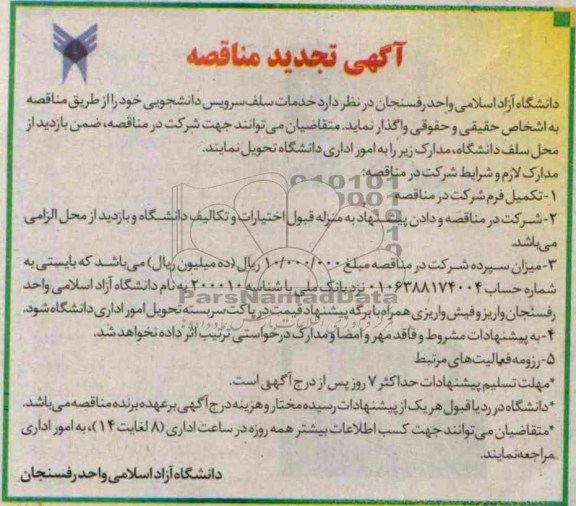 آگهی تجدید مناقصه
دانشگاه آزاد اسلامی واحد رفسنجان در نظر دارد خدمات سلف سرویس دانشجویی خود را از طریق مناقصه
به اشخاص حقیقی و حقوقی واگذار نماید. متقاضیان می‌توانند جهت شرکت در مناقصه، ضمن بازدید از
محل سلف دانشگاه، مدارک زیر را به امور اداری دانشگاه تحویل نمایند.
مدارک لازم و شرایط شرکت در مناقصه:
۱- تکمیل فرم شرکت در مناقصه
۲- شرکت در مناقصه و دادن پیشنهاد به منزله قبول اختیارات و تکالیف دانشگاه و بازدید از محل الزامی
می‌باشد.
۳- میزان سپرده شرکت در مناقصه مبلغ ۱۰/۰۰۰/۰۰۰ ریال (ده میلیون ریال) می‌باشد که بایستی به
شماره حساب ۰۱۰۶۳۸۸۱۷۴۰۰۴ نزد بانک ملی با شناسه ۲۰۰۰۱۰ به نام دانشگاه آزاد اسلامی واحد
رفسنجان واریز و فیش واریزی همراه با برگه پیشنهاد قیمت در پاکت سربسته تحویل امور اداری دانشگاه شود.
۴- به پیشنهادات مشروط و فاقد مهر و امضا و مدارک درخواستی ترتیب اثر داده نخواهد شد.
۵- رزومه فعالیت‌های مرتبط
*مهلت تسلیم پیشنهادات حداکثر ۷ روز پس از درج آگهی است.
*دانشگاه در رد یا قبول هر یک از پیشنهادات رسیده مختار و هزینه درج آگهی بر عهده برنده مناقصه می‌باشد.
*متقاضیان می‌توانند جهت کسب اطلاعات بیشتر همه روزه در ساعت اداری (۸ لغایت ۱۴)، به امور اداری
مراجعه نمایند.
دانشگاه آزاد اسلامی واحد رفسنجان
ParsNamadData